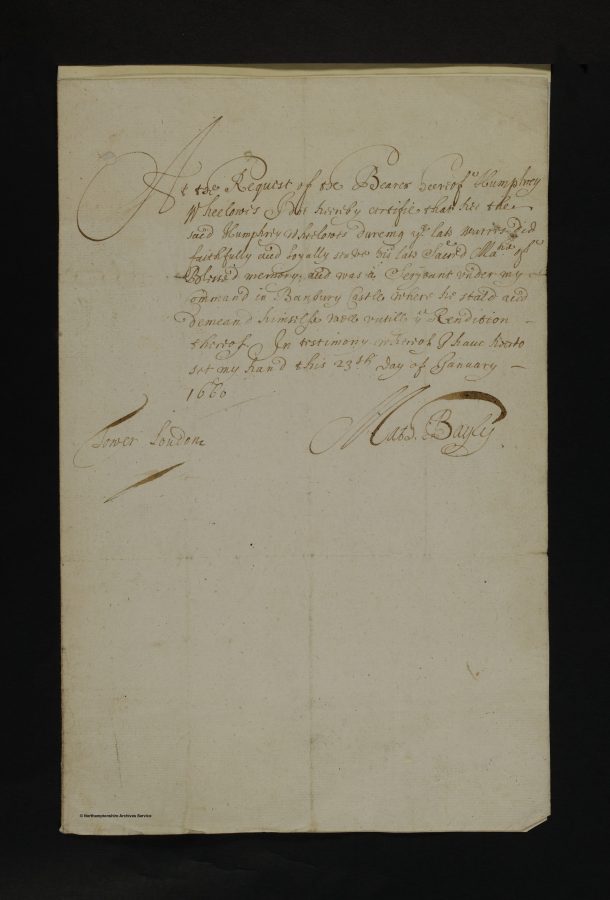 At the Request of the Bearer hereof Humphrey
Wheelowes I doe hereby certifie that hee the
said Humphrey Wheelowes dureing yᵉ late warres did
faithfully and Loyally serve his late Sacred Maᵗⁱᵉ of
Blessed memory, and was a Serjeant under my
command in Banbury Castle where he staid and
demeand himselfe well untill yᵉ Rendition
thereof. In testimony whereof I have hereto
set my hand this 23th day of January
1660
Tower London
Bayly
© Northamptonshire Archives Service